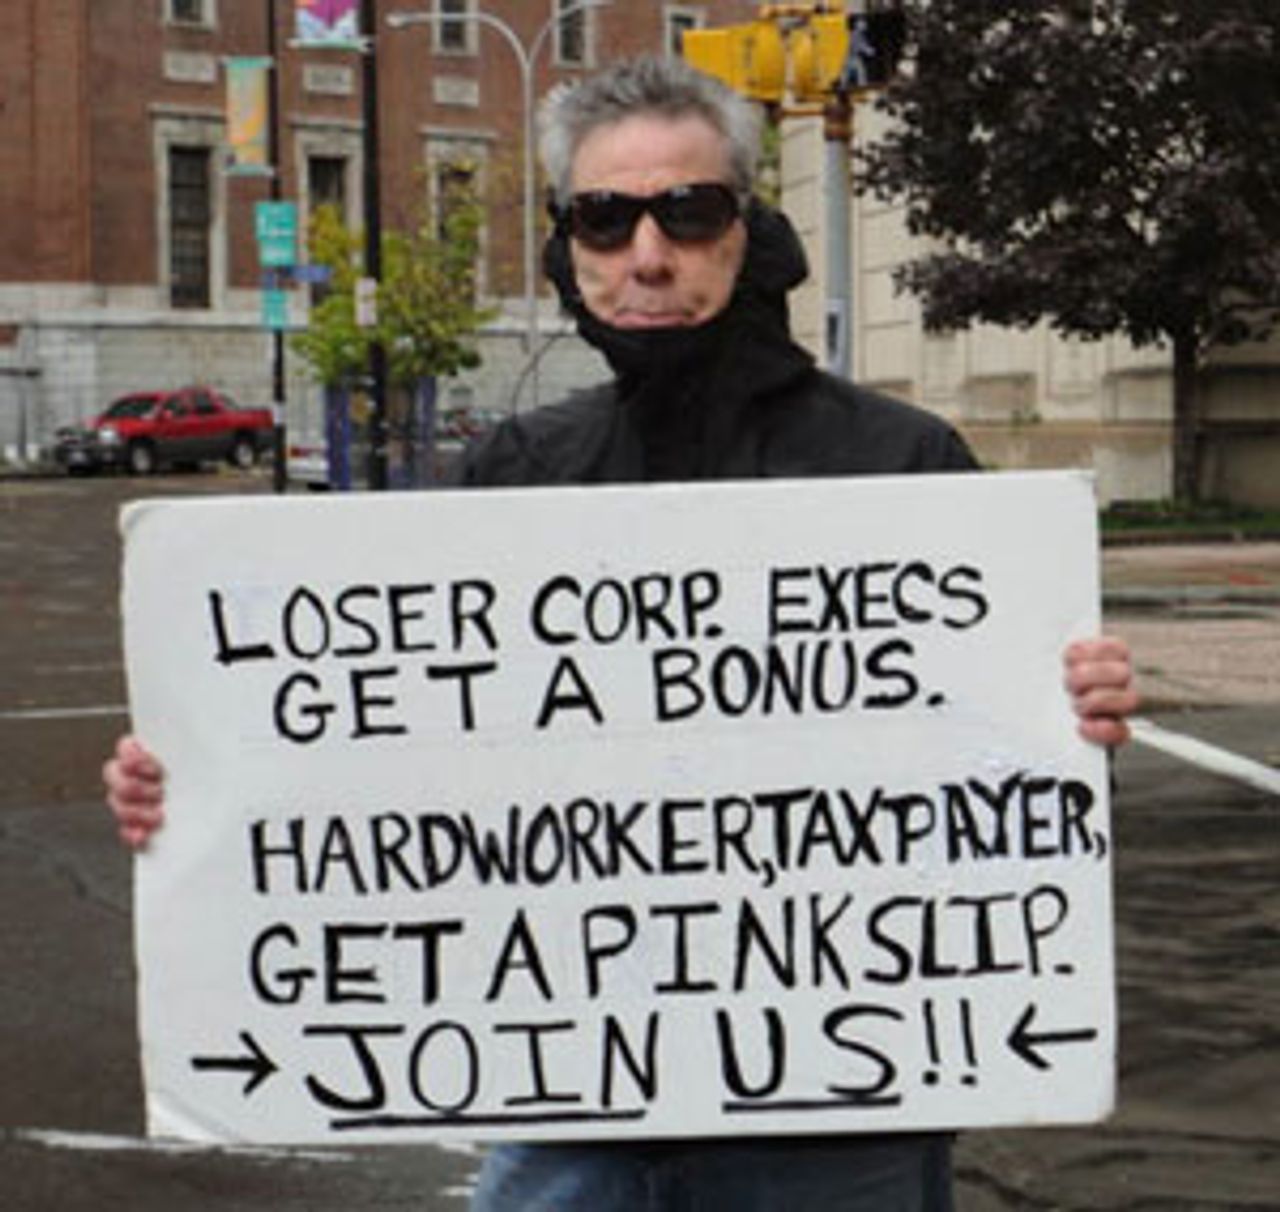 LOSER CORP. EXECS
GET A BONUS.
HARDWORKER, TAXPAYER,
GET A PINK SLIP.
→ JOIN US!! ←